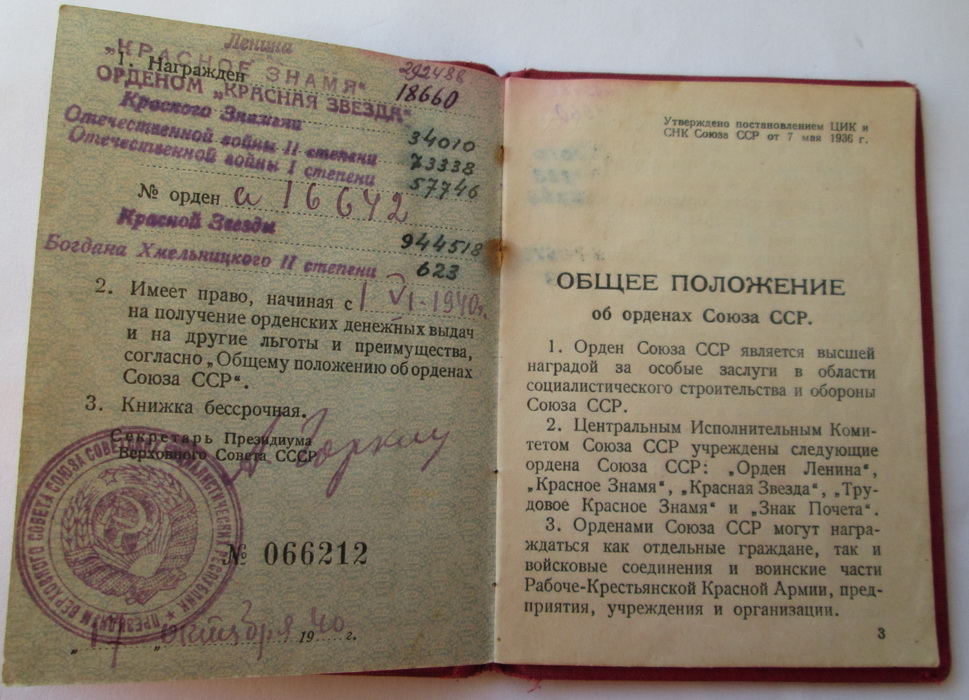 Ленина 292488
„КРАСНОЕ ЗНАМЯ“
1. Награжден 18660
ОРДЕНОМ „КРАСНАЯ ЗВЕЗДА“
Красного Знамени 34010
Отечественной войны II степени 73338
Отечественной войны I степени 57746
№ орден а 16642
Красной Звезды 944518
Богдана Хмельницкого II степени 623
2. Имеет право, начиная с 1 VI-1940г.
на получение орденских денежных выдач
и на другие льготы и преимущества,
согласно „Общему положению об орденах
Союза ССР“.
3. Книжка бессрочная.
Секретарь Президиума
Верховного Совета СССР
А Горкин
ПРЕЗИДИУМ ВЕРХОВНОГО СОВЕТА СОЮЗА СОВЕТСКИХ СОЦИАЛИСТИЧЕСКИХ РЕСПУБЛИК
№ 066212
„17“ октября 1940 г.
Утверждено постановлением ЦИК и
СНК Союза ССР от 7 мая 1936 г.
ОБЩЕЕ ПОЛОЖЕНИЕ
об орденах Союза ССР.
1. Орден Союза ССР является высшей
наградой за особые заслуги в области
социалистического строительства и обороны
Союза ССР.
2. Центральным Исполнительным Коми-
тетом Союза ССР учреждены следующие
ордена Союза ССР: „Орден Ленина“,
„Красное Знамя“, „Красная Звезда“, „Тру-
довое Красное Знамя“ и „Знак Почета“.
3. Орденами Союза ССР могут награ-
ждаться как отдельные граждане, так и
войсковые соединения и воинские части
Рабоче-Крестьянской Красной Армии, пред-
приятия, учреждения и организации.
3